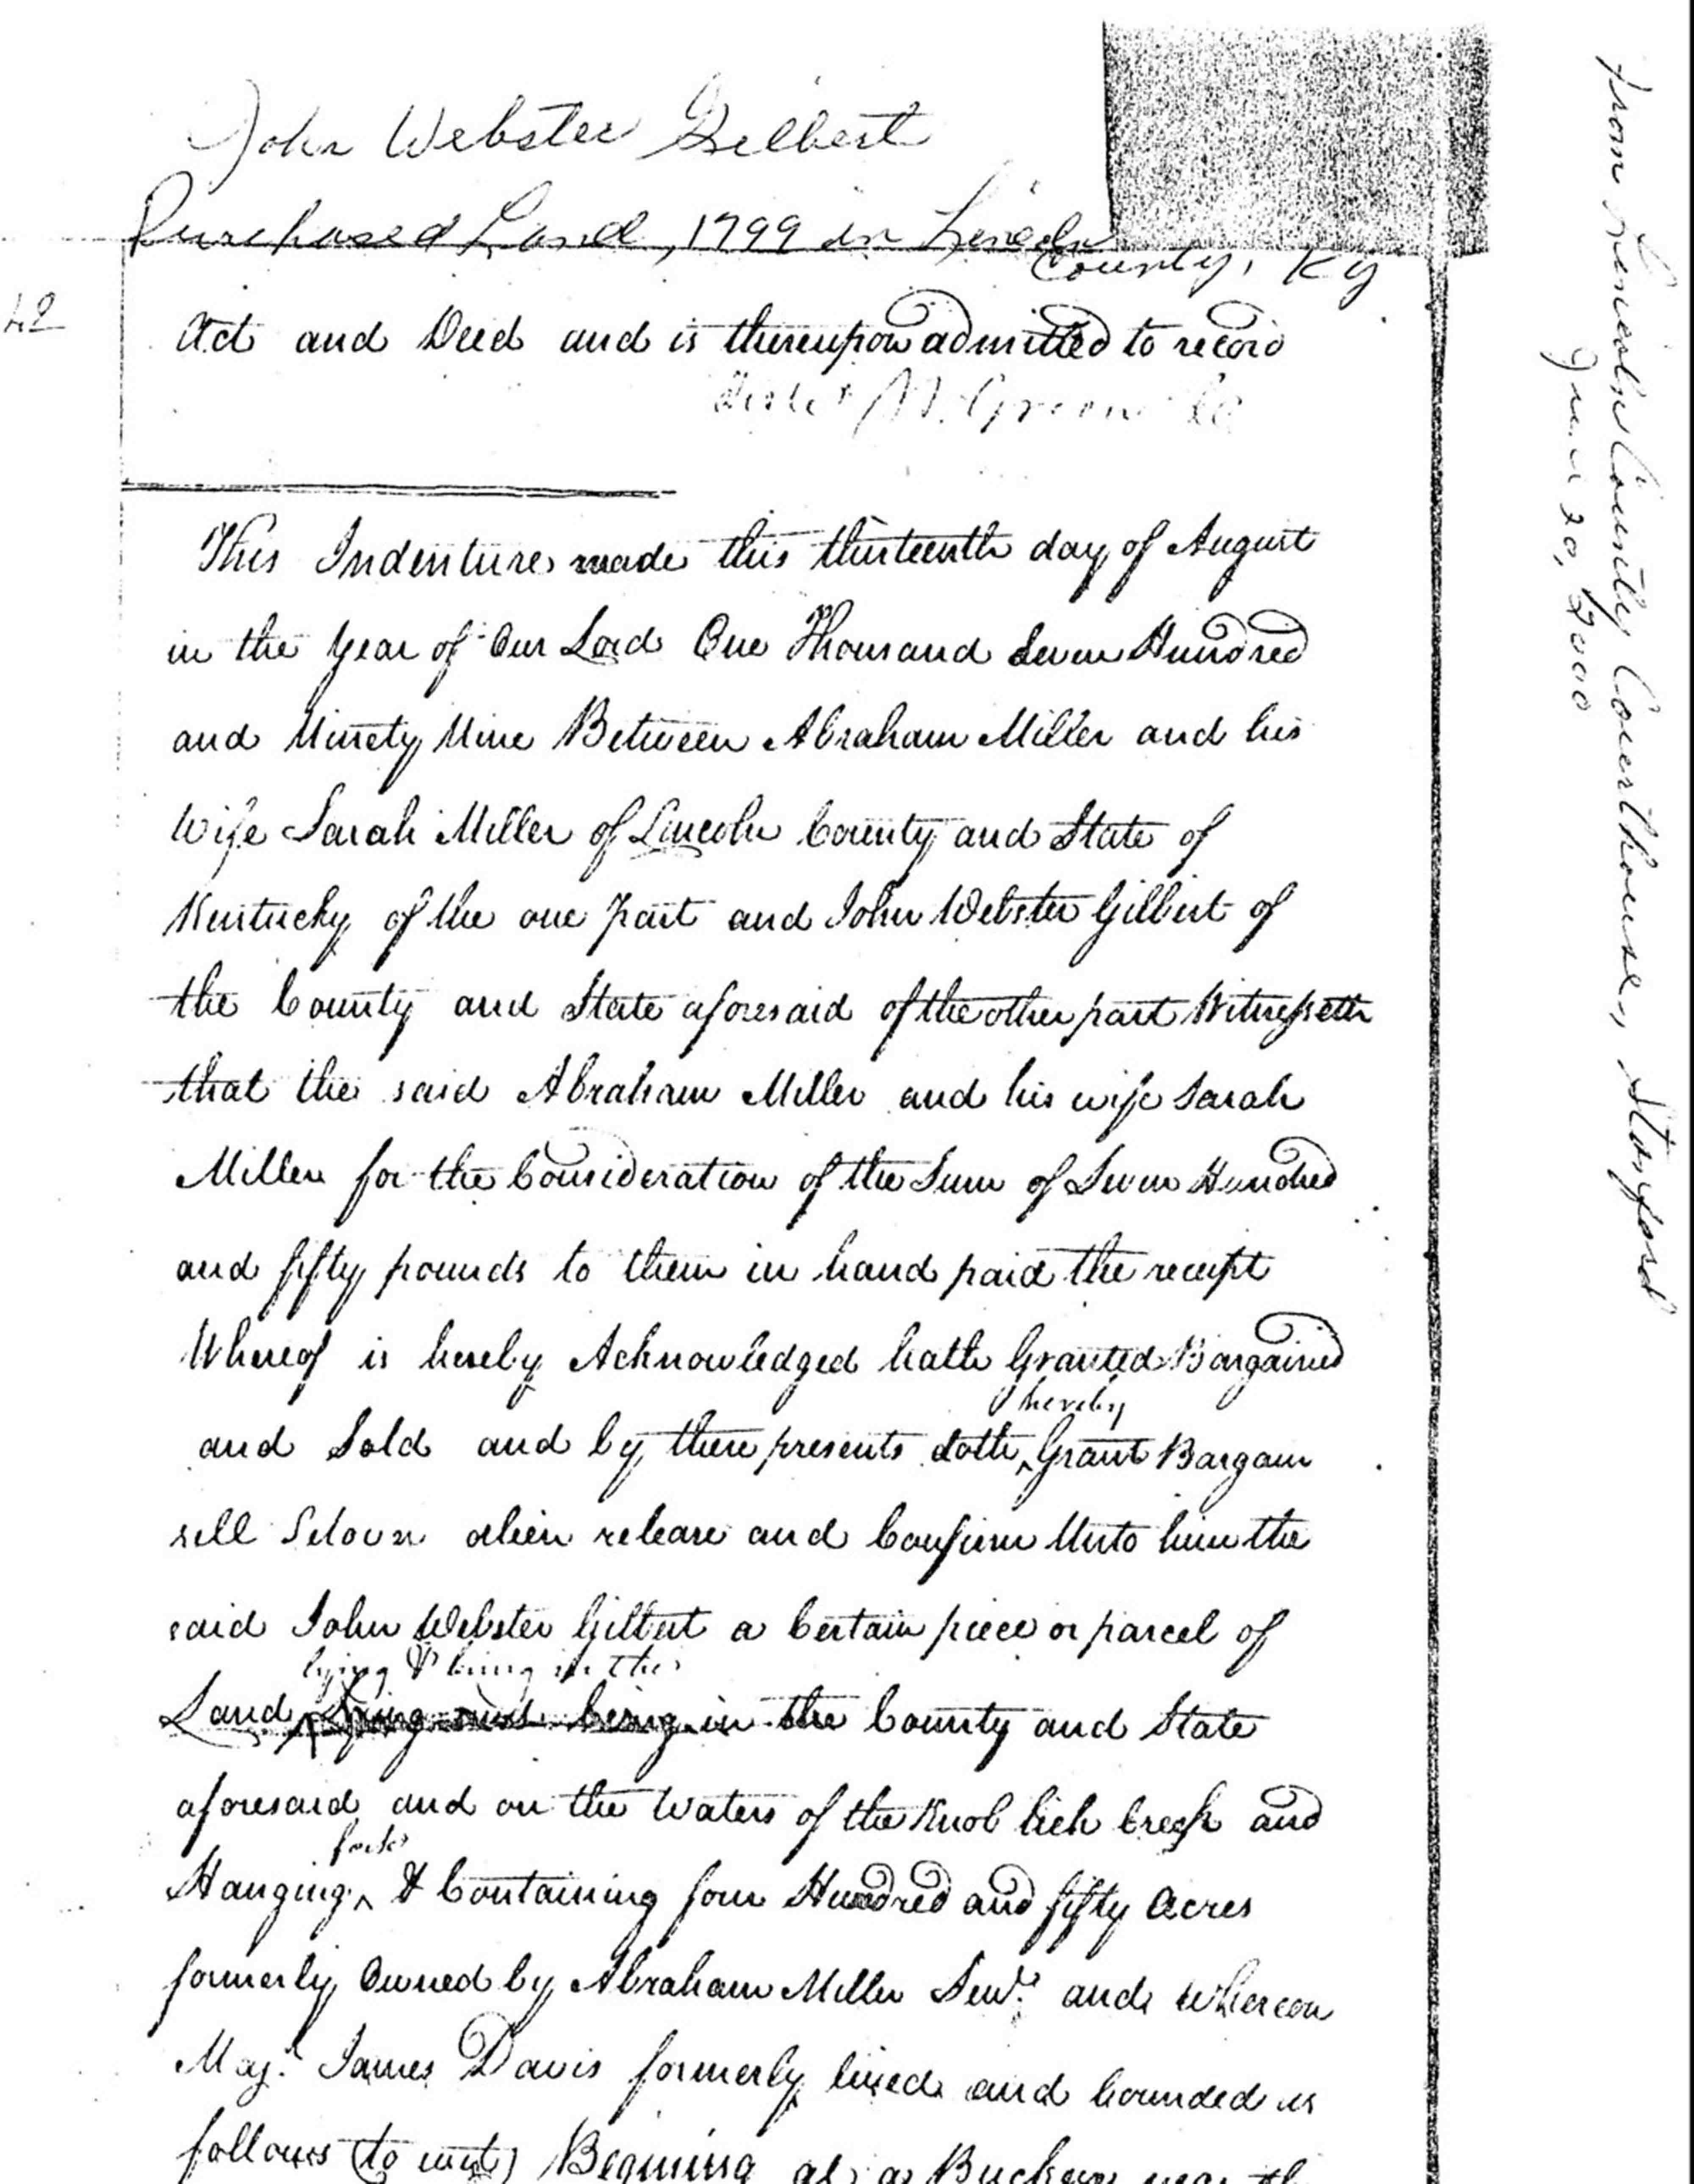 John Webster Gilbert
Purchased Land, 1799 in Lincoln
County, Ky
42
Act and Deed and is thereupon admitted to record
Green
This Indenture made this thirteenth day of August
in the Year of Our Lord One Thousand Seven Hundred
and Ninety Nine Between Abraham Miller and his
Wife Sarah Miller of Lincoln County and State of
Kentucky of the one part and John Webster Gilbert of
the County and State aforesaid of the other part Witnesseth
that the said Abraham Miller and his wife Sarah
Miller for the Consideration of the Sum of Seven Hundred
and fifty pounds to them in hand paid the receipt
Whereof is hereby Acknowledged hath Granted Bargained
hereby
and Sold and by these presents doth ^ Grant Bargain
sell alien release and Confirm Unto him the
said John Webster Gilbert a Certain piece or parcel of
lying & being in the
Land ^ lying and being in the County and State
aforesaid and on the Waters of the Knob lick Creek and
fork
Hanging ^ & Containing four Hundred and fifty Acres
formerly Owned by Abraham Miller Senr. and whereon
Majr. James Davis formerly lived and bounded as
follows (to wit) Begining at a Buckeye near the
from Lincoln County Courthouse, Stanford
June 20, 2000